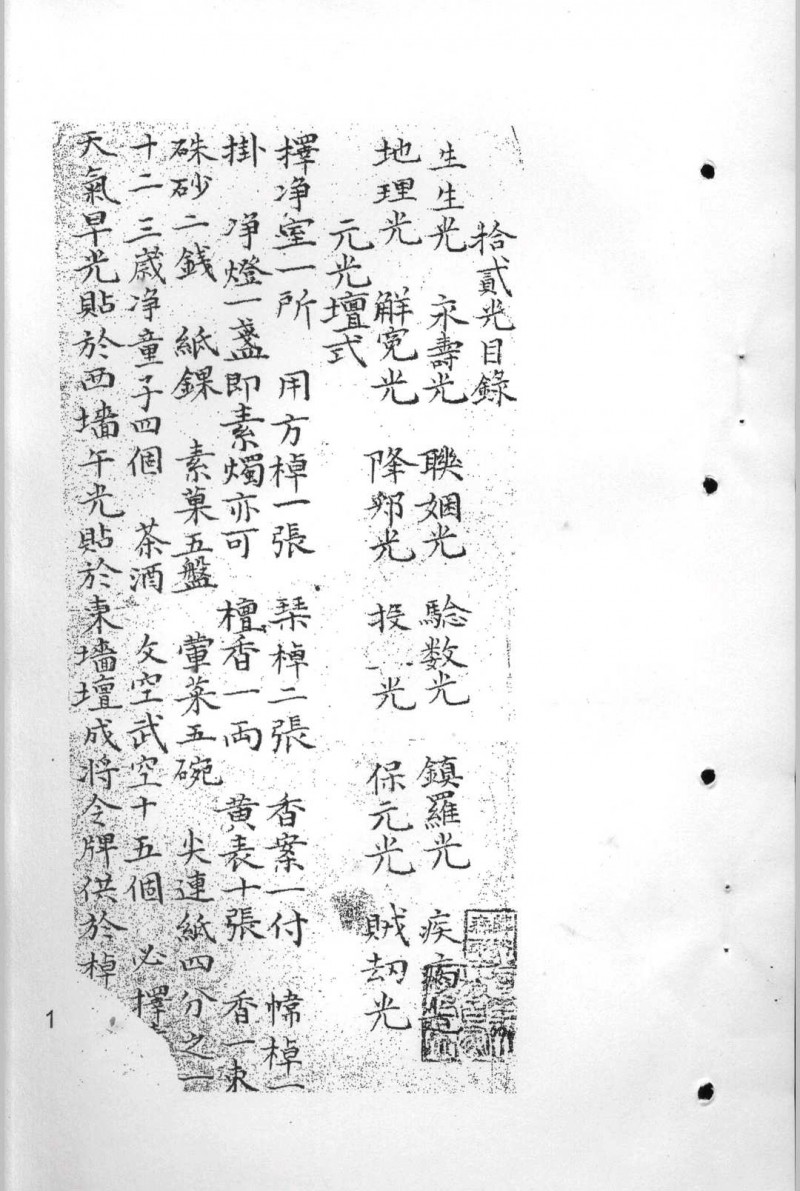 拾貳光目錄
生生光 永壽光 聮姻光 騐数光 鎮羅光 疾病光
地理光 解寃光 降邪光 投 光 保元光 賊刼光
元光壇式
擇净室一所 用方棹一張 琹棹二張 香案一付 幃棹一
掛 净燈一盞即素燭亦可 檀香一両 黄表十張 香一束
硃砂二銭 紙錁 素菓五盤 葷菜五碗 尖連紙四分之一
十二三歲净童子四個 茶酒 文空武空十五個 必擇
天氣早光貼於西墻午光貼於東墻壇成將令牌供於棹
1